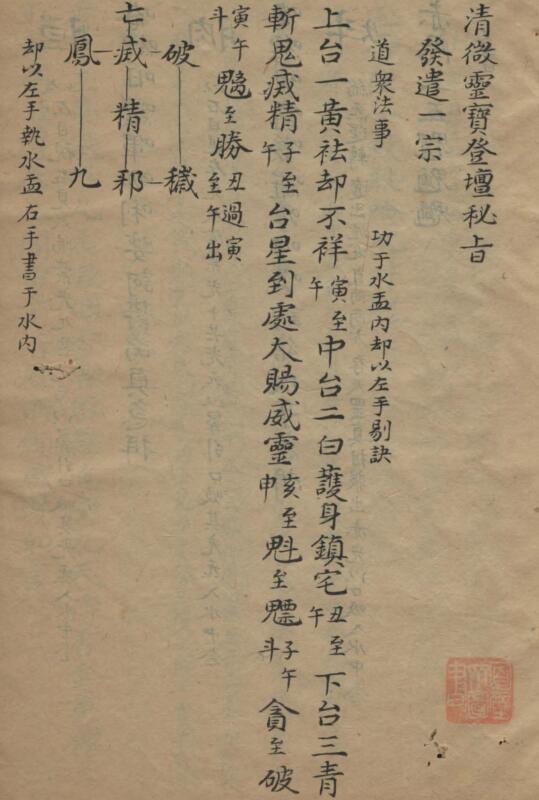 清微靈寶登壇秘旨
發遣一宗
道眾法事 功于水盂內却以左手剔訣
上台一黃祛却不祥寅至午中台二白護身鎮宅丑至午下台三青
斬鬼滅精子至午台星到處大賜威靈亥至申魁至魒子午斗貪至破
寅午斗魁至勝丑過寅至午出
破 穢
亡 滅 精 邪
鳳 九
却以左手執水盂右手書于水內